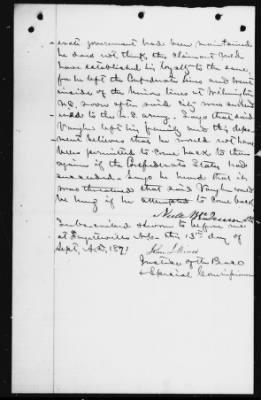 erate government had been maintained
he does not think the claimant could
have established his loyalty to the same,
for he left the Confederate lines and went
inside of the Union lines at Wilmington
N.C. soon after said City surren-
dered to the U.S. army. Says that said
Vaughn left his family and this depo-
nent believes that he would not have
been permitted to come back to them
again if the Confederate States had
succeeded. Says he heard that it
was threatened that said Vaughn would
be hung if he attempted to come back
Neill
Subscribed & sworn to before me
at Fayetteville N.C. this 13th day of
Sept. A.D. 1871
John
Justice of the Peace
& Special Commissioner